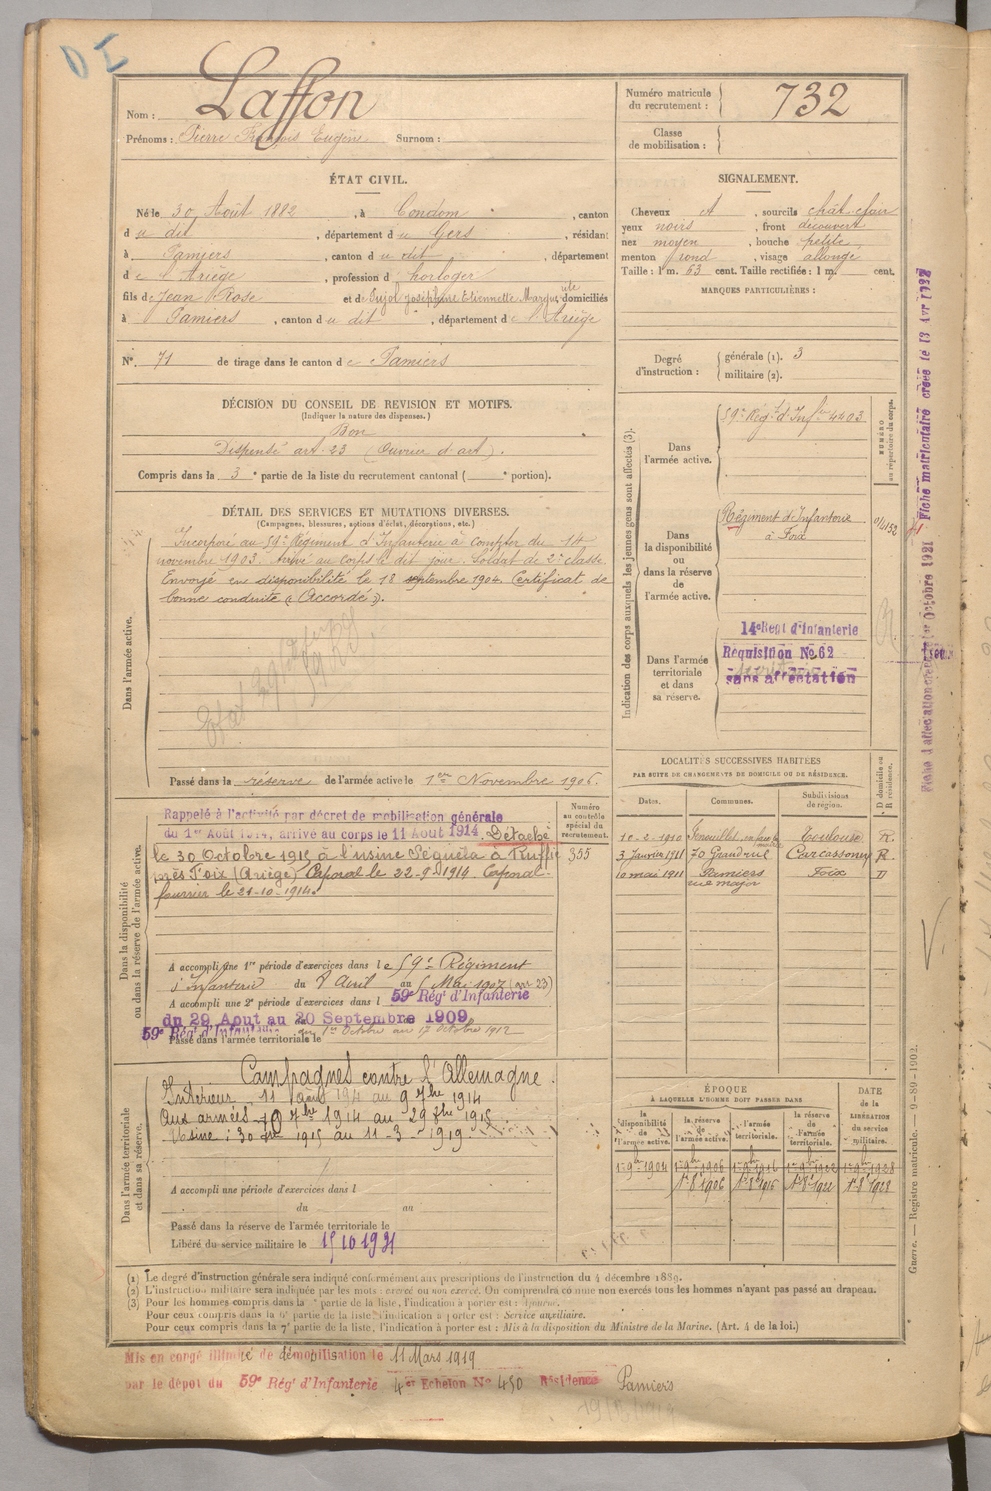 D I
Nom : Laffon
Prénoms : Pierre François Eugène Surnom :
Numéro matricule du recrutement : 732
Classe de mobilisation :
ÉTAT CIVIL.
Né le 30 Août 1882, à Condom, canton
du dit, département du Gers, résidant
à Pamiers, canton du dit, département
de l'Ariège, profession d horloger
fils de Jean Rose et de Pujol Joséphine Etiennette Marguerite domiciliés
à Pamiers, canton du dit, département de l'Ariège
N° 71 de tirage dans le canton de Pamiers
SIGNALEMENT.
Cheveux et, sourcils chât. clair
yeux noirs, front découvert
nez moyen, bouche petite
menton rond, visage allongé
Taille : 1 m. 63 cent. Taille rectifiée : 1 m. cent.
MARQUES PARTICULIÈRES :
Degré d'instruction : générale (1). 3
militaire (2).
DÉCISION DU CONSEIL DE REVISION ET MOTIFS.
(Indiquer la nature des dispenses.)
Bon
Dispensé art. 23 (Ouvrier d'art).
Compris dans la 3e partie de la liste du recrutement cantonal ( e portion).
DÉTAIL DES SERVICES ET MUTATIONS DIVERSES.
(Campagnes, blessures, actions d'éclat, décorations, etc.)
Dans l'armée active.
Incorporé au 59e Régiment d'Infanterie à compter du 14
novembre 1903. Arrivé au corps le dit jour. Soldat de 2e classe.
Envoyé en disponibilité le 18 septembre 1904. Certificat de
bonne conduite « Accordé ».
Passé dans la réserve de l'armée active le 1er Novembre 1906.
Indication des corps auxquels les jeunes gens sont affectés (3).
NUMÉRO au répertoire du corps.
Dans l'armée active.
59e Régt d'Infie 4403
Dans la disponibilité ou dans la réserve de l'armée active.
Régiment d'Infanterie
à Foix
Dans l'armée territoriale et dans sa réserve.
14e Regt d'Infanterie
Requisition No 62
sans affectation
Fiche matriculaire créée le 13 Avr 1932
Dans la disponibilité ou dans la réserve de l'armée active.
Rappelé à l'activité par décret de mobilisation générale
du 1er Août 1914, arrivé au corps le 11 Août 1914. Détaché
le 30 Octobre 1915 à l'usine
près Foix (Ariège) Caporal le 22-9-1914 Caporal-
fourrier le 21-10-1914.
Numéro au contrôle spécial du recrutement.
355
A accompli une 1re période d'exercices dans le 59e Régiment
d'Infanterie du 8 Avril au Mai 1907
A accompli une 2e période d'exercices dans l 59e Rég' d'Infanterie
du 29 Aout au 20 Septembre 1909
59e Rég' d'Infanterie du 1er Octobre au 17 octobre 1912
Passé dans l'armée territoriale le
LOCALITÉS SUCCESSIVES HABITÉES
PAR SUITE DE CHANGEMENTS DE DOMICILE OU DE RÉSIDENCE.
Dates. Communes. Subdivisions de région. D domicile ou R résidence.
10-2-1910 Fenouillet Toulouse R.
3 Janvier 1911 Carcassonne R.
10 mai 1911 Pamiers rue major Foix D
Dans l'armée territoriale et dans sa réserve.
Campagnes contre l'Allemagne.
Intérieur 11 août 1914 au 9 7bre 1914
Aux armées 10 7bre 1914 au 29 8bre 1915
Usine : 30 8bre 1915 au 11-3-1919
A accompli une période d'exercices dans l
du au
Passé dans la réserve de l'armée territoriale le
Libéré du service militaire le 15 10 1931
ÉPOQUE
À LAQUELLE L'HOMME DOIT PASSER DANS
la disponibilité de l'armée active.
la réserve de l'armée active.
l'armée territoriale.
la réserve de l'armée territoriale.
DATE de la LIBÉRATION du service militaire.
1er 9bre 1904 1er 9bre 1906 1er 9bre 1916 1er 9bre 1922 1er 9bre 1928
1er 8e 1906 1er 8e 1916 1er 8e 1922 1er 8e 1928
Guerre. — Registre matricule. — 9-89-1902.
(1) Le degré d'instruction générale sera indiqué conformément aux prescriptions de l'instruction du 4 décembre 1889.
(2) L'instruction militaire sera indiquée par les mots : exercé ou non exercé. On comprendra comme non exercés tous les hommes n'ayant pas passé au drapeau.
(3) Pour les hommes compris dans la e partie de la liste, l'indication à porter est : Ajourné.
Pour ceux compris dans la 6e partie de la liste l'indication à porter est : Service auxiliaire.
Pour ceux compris dans la 7e partie de la liste, l'indication à porter est : Mis à la disposition du Ministre de la Marine. (Art. 4 de la loi.)
Mis en congé illimité de démobilisation le 11 Mars 1919
par le dépôt du 59e Rég' d'Infanterie 4e Echelon No 450 Résidence Pamiers